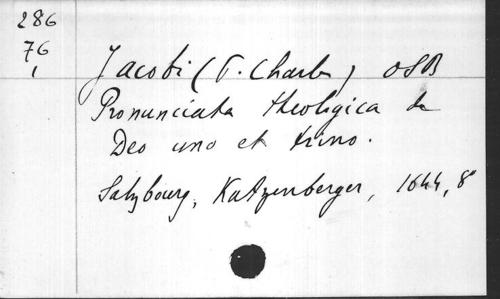 286
76
1
Jacobi (P. Charles) OSB
Pronunciata theologica de
Deo uno et trino.
Salzbourg, Katzenberger, 1644, 8°